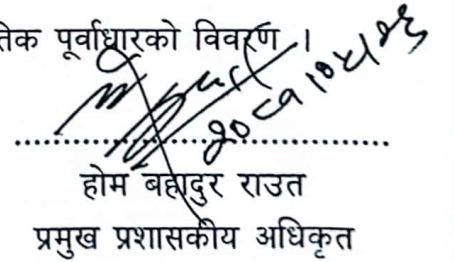 तिक पूर्वाधारको विवरण ।
होम बहादुर राउत
प्रमुख प्रशासकीय अधिकृत